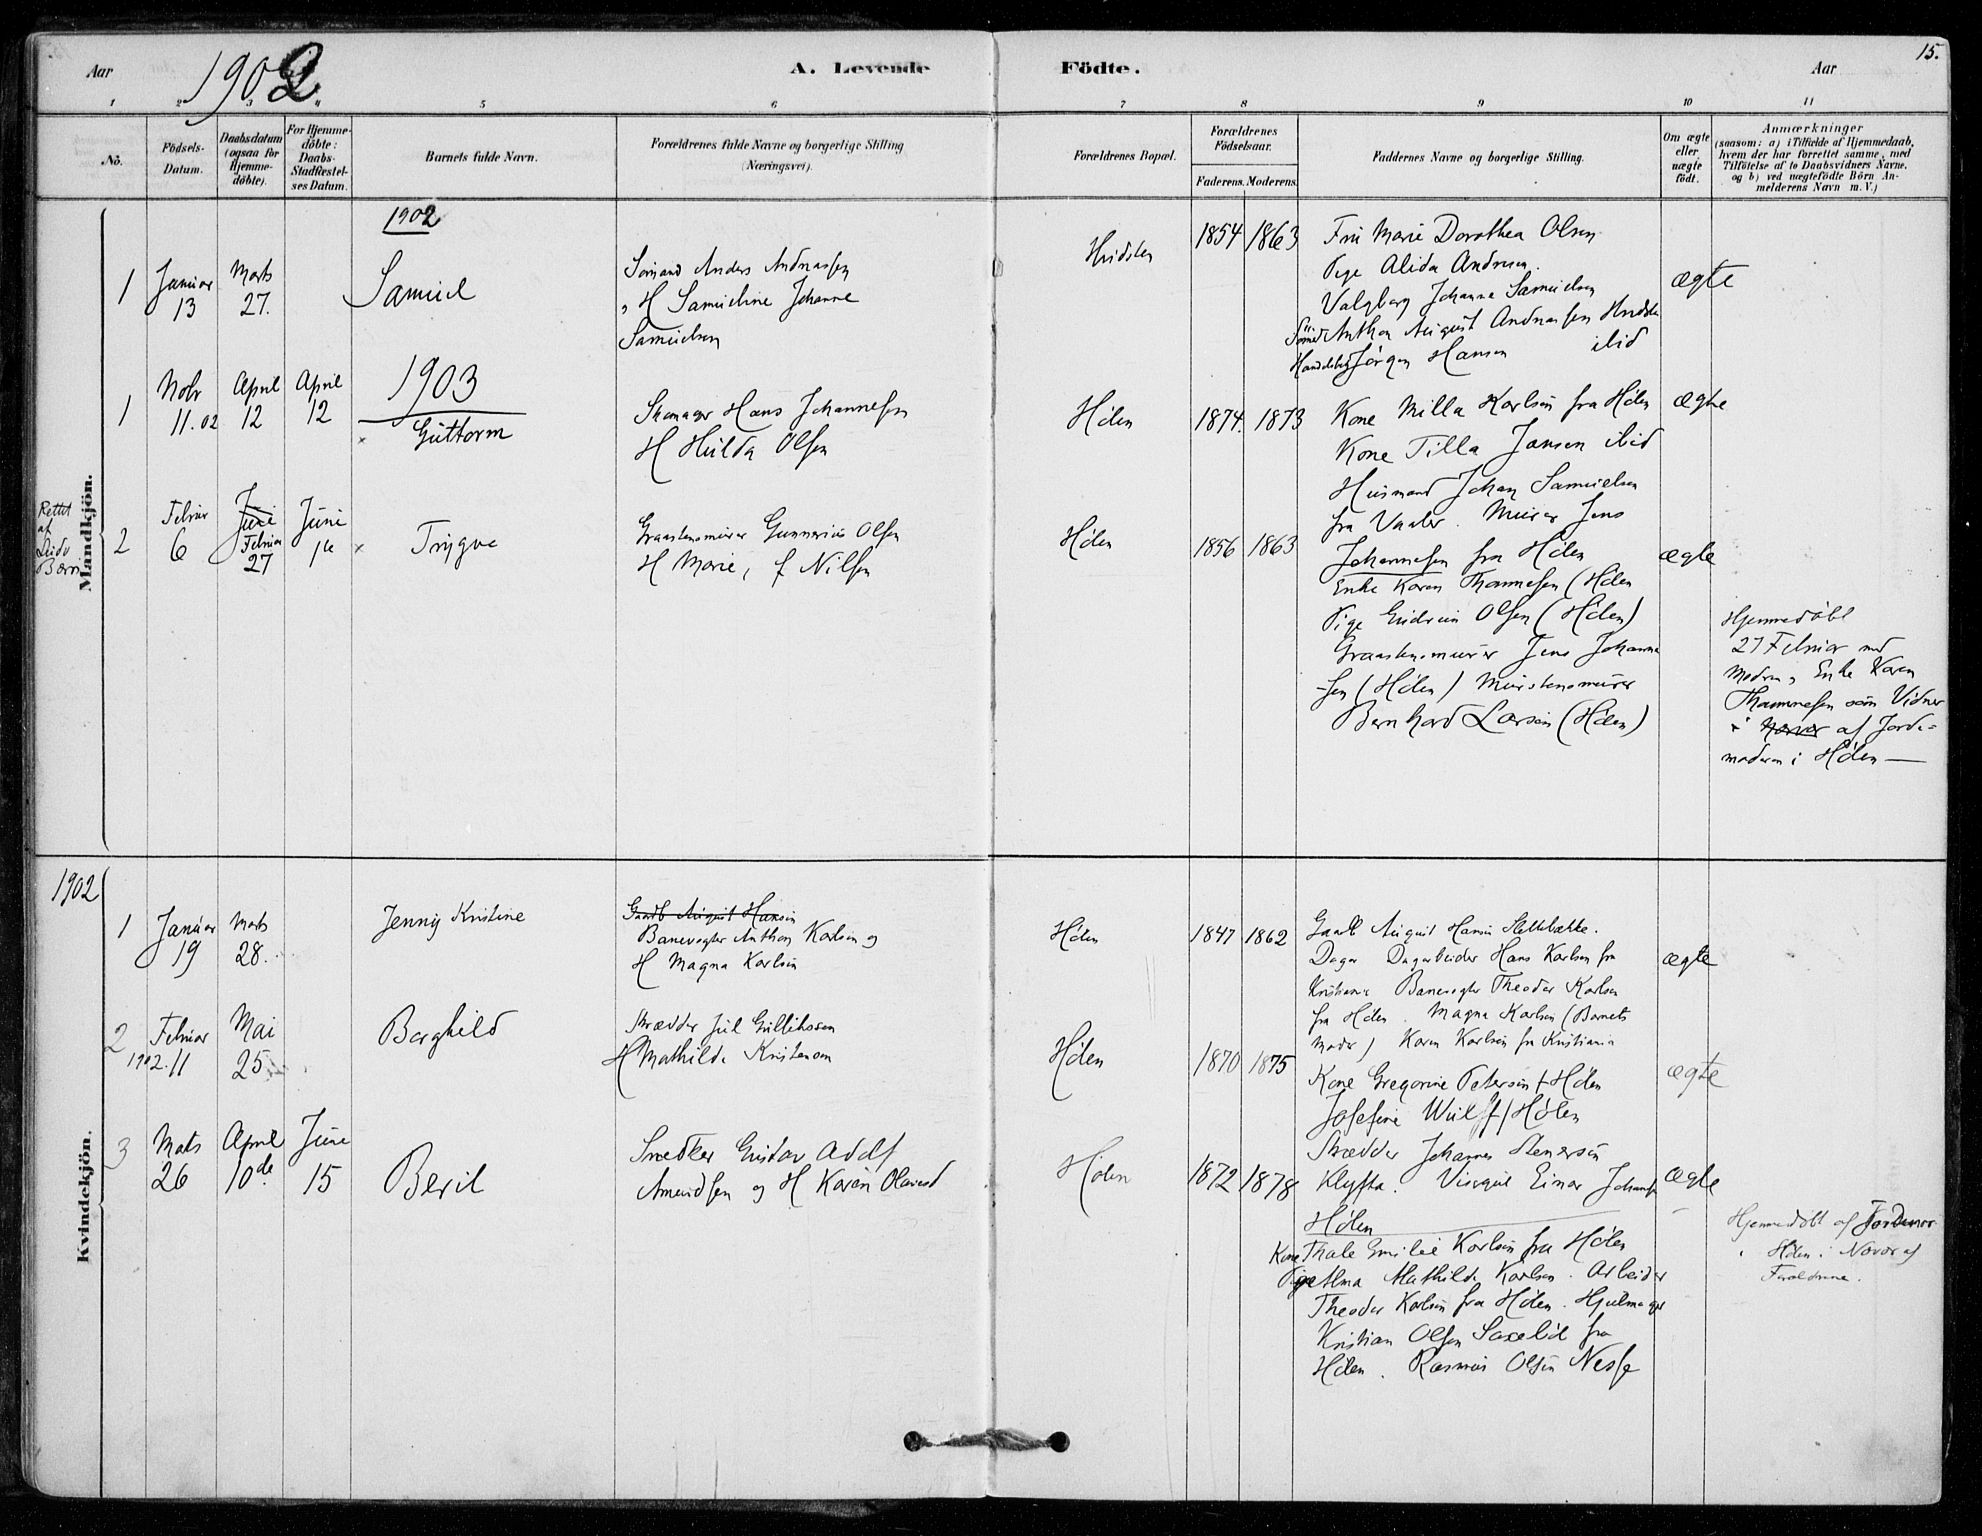 15.
Aar 1902 A. Levende Födte. Aar
1 2 3 4 5 6 7 8 9 10 11
No. Födsels-Datum. Daabsdatum (ogsaa for Hjemme-döbte). For Hjemme-döbte: Daabs-Stadfæstel-ses Datum. Barnets fulde Navn. Forældrenes fulde Navne og borgerlige Stilling (Næringsvei). Forældrenes Bopæl. Forældrenes Födselsaar. Faderens. Moderens. Faddernes Navne og borgerlige Stilling. Om ægte eller uægte födt. Anmærkninger (saasom: a) i Tilfælde af Hjemmedaab, hvem der har forrettet samme, med Tilföielse af to Daabsvidners Navne, og b) ved uægtefödte Börn An-melderens Navn m. V.)
Mandkjön.
1902
1 Januar 13 Marts 27. Samuel
Sömand Anders Andreassen
H Samueline Johanne
Samuelsen
Hvidsten 1854 1863
Fru Marie Dorothea Olsen
Pige Alida Andresen.
Valgborg Johanne Samuelsen
Sömd Anthon August Andreassen Hvidsten
Jörgen Hansen ibid
ægte
1903
1 Novbr 11.02 April 12 April 12 × Guttorm
Skomager Hans Johannessen
H Hulda Olsen
Hölen 1874. 1873
Kone Milla Karlsen fra Hölen
Kone Tilla Jansen ibid
Husmand Johan Samuelsen
fra Vaaler. Murer Jens
Johannessen fra Hölen
ægte
Rettet
af
2 Februar 6 Juni Februar 27 Juni 14 × Trygve
Graastensmurer Gunnerius Olsen
H Marie, f Nilsen
Hölen 1856 1863
Enke Karen Thommessen (Hölen
Pige Gudrun Olsen (Hölen)
Graastensmurer Jens Johanne
-sen (Hölen) Murstensmurer
Bernhard Larsen (Hölen)
ægte
Hjemmedöbt
27 Februar med
Moderen, Enke Karen
Thommessen som Vidner
af Jorde-
moderen i Hölen
Kvindekjön.
1902
1 Januar 19 Marts 28. Jenny Kristine
Gaardb August Hansen
Banevogter Anthon Karlsen og
H Magna Karlsen
Hölen 1847 1862
Gaardb August Hansen
Dagarbeider Hans Karlsen fra
Kristiania Banevogter Theodor Karlsen
fra Hölen. Magna Karlsen (Barnets
Moder) Karen Karlsen fra Kristiania
ægte
2 Februar 1902. 11 Mai 25 Borghild
Skrædder Jul Gullikssen
H Mathilde Kristensen
Hölen 1870 1875
Kone Gregorine Petersen f Hölen
Josefine Wulff Hölen
Skrædder Johannes Stenersen
Klyfta. Visergut Einar Johansen
Hölen
ægte
3 Marts 26 April 10de Juni 15 Beril
Snedker Gustav Adolf
Amundsen og H Karen
Hölen 1872 1878
Kone Thale Emilie Karlsen fra Hölen
Pige Alma Mathilde Karlsen. Arbeider
Theodor Karlsen fra Hölen. Hjulmager
Kristian Olsen Saxelid fra
Hölen. Rasmus Olsen Nesse
ægte
Hjemmedöbt af Jordemor
i Hölen i Nærvær af
Foreldrene.